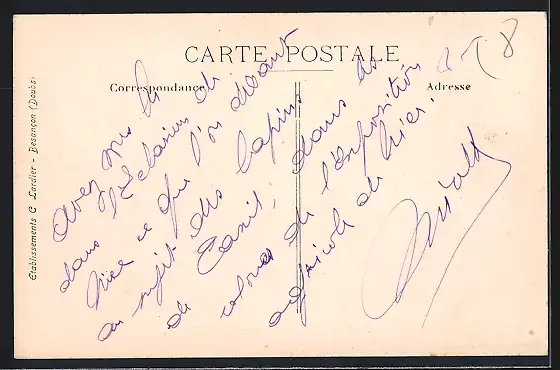 CARTE POSTALE
Correspondance
Adresse
Etablissements C. Lardier - Besançon (Doubs)
Avez vous lu
dans l'Eclaireur de
Nice ce que l'on disait
au sujet des lapins
de Zanit, dans les
colonnes de l'exposition
agricole de hier.